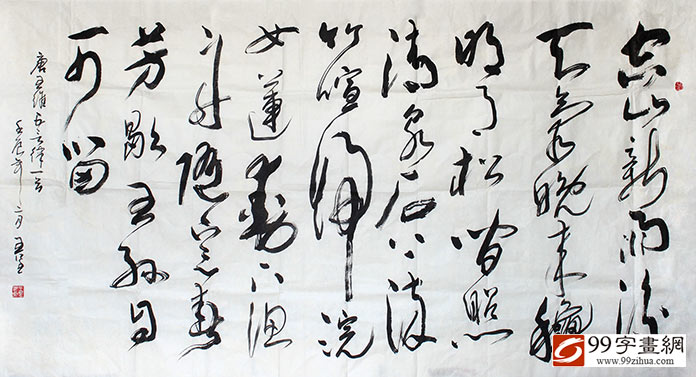 空山新雨後
天氣晚來穐
明月松間照
清泉石上流
竹喧歸浣
女蓮動下漁
舟随意春
芳歇王孫自
可留
唐王維五言律一首
壬辰年二月
99字畫網
www.99zihua.com